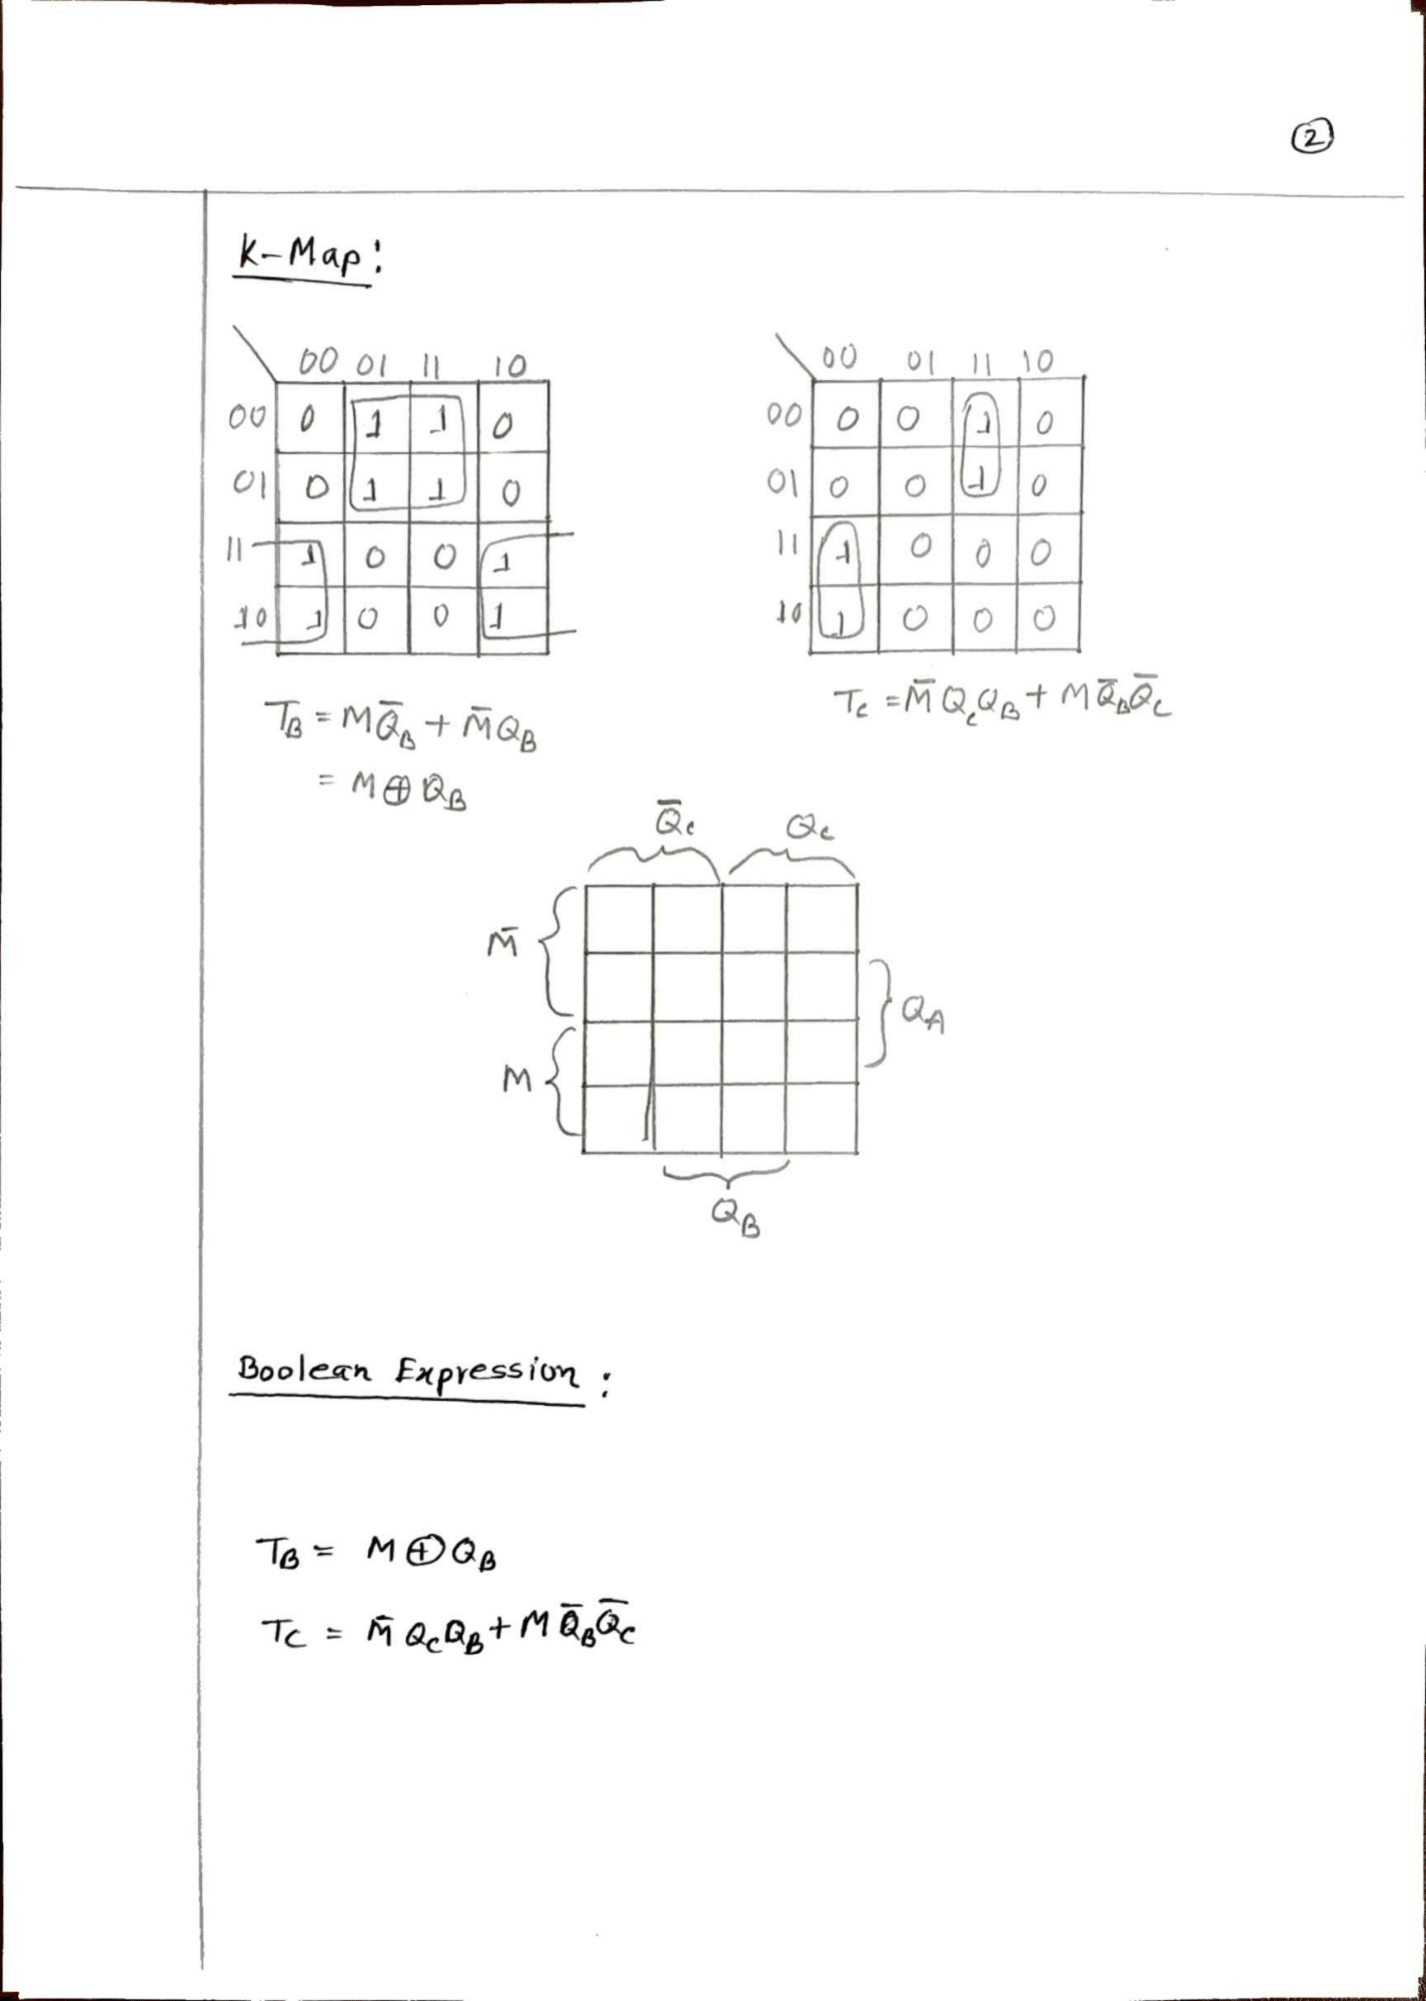 2
K-Map:
00 01 11 10
00 0 1 1 0
01 0 1 1 0
11 1 0 0 1
10 1 0 0 1
T_B = MQ̄_B + M̄Q_B
= M ⊕ Q_B
00 01 11 10
00 0 0 1 0
01 0 0 1 0
11 1 0 0 0
10 1 0 0 0
T_C = M̄ Q_C Q_B + M Q̄_B Q̄_C
Q̄_C Q_C
M̄
Q_A
M
Q_B
Boolean Expression :
T_B = M ⊕ Q_B
T_C = M̄ Q_C Q_B + M Q̄_B Q̄_C